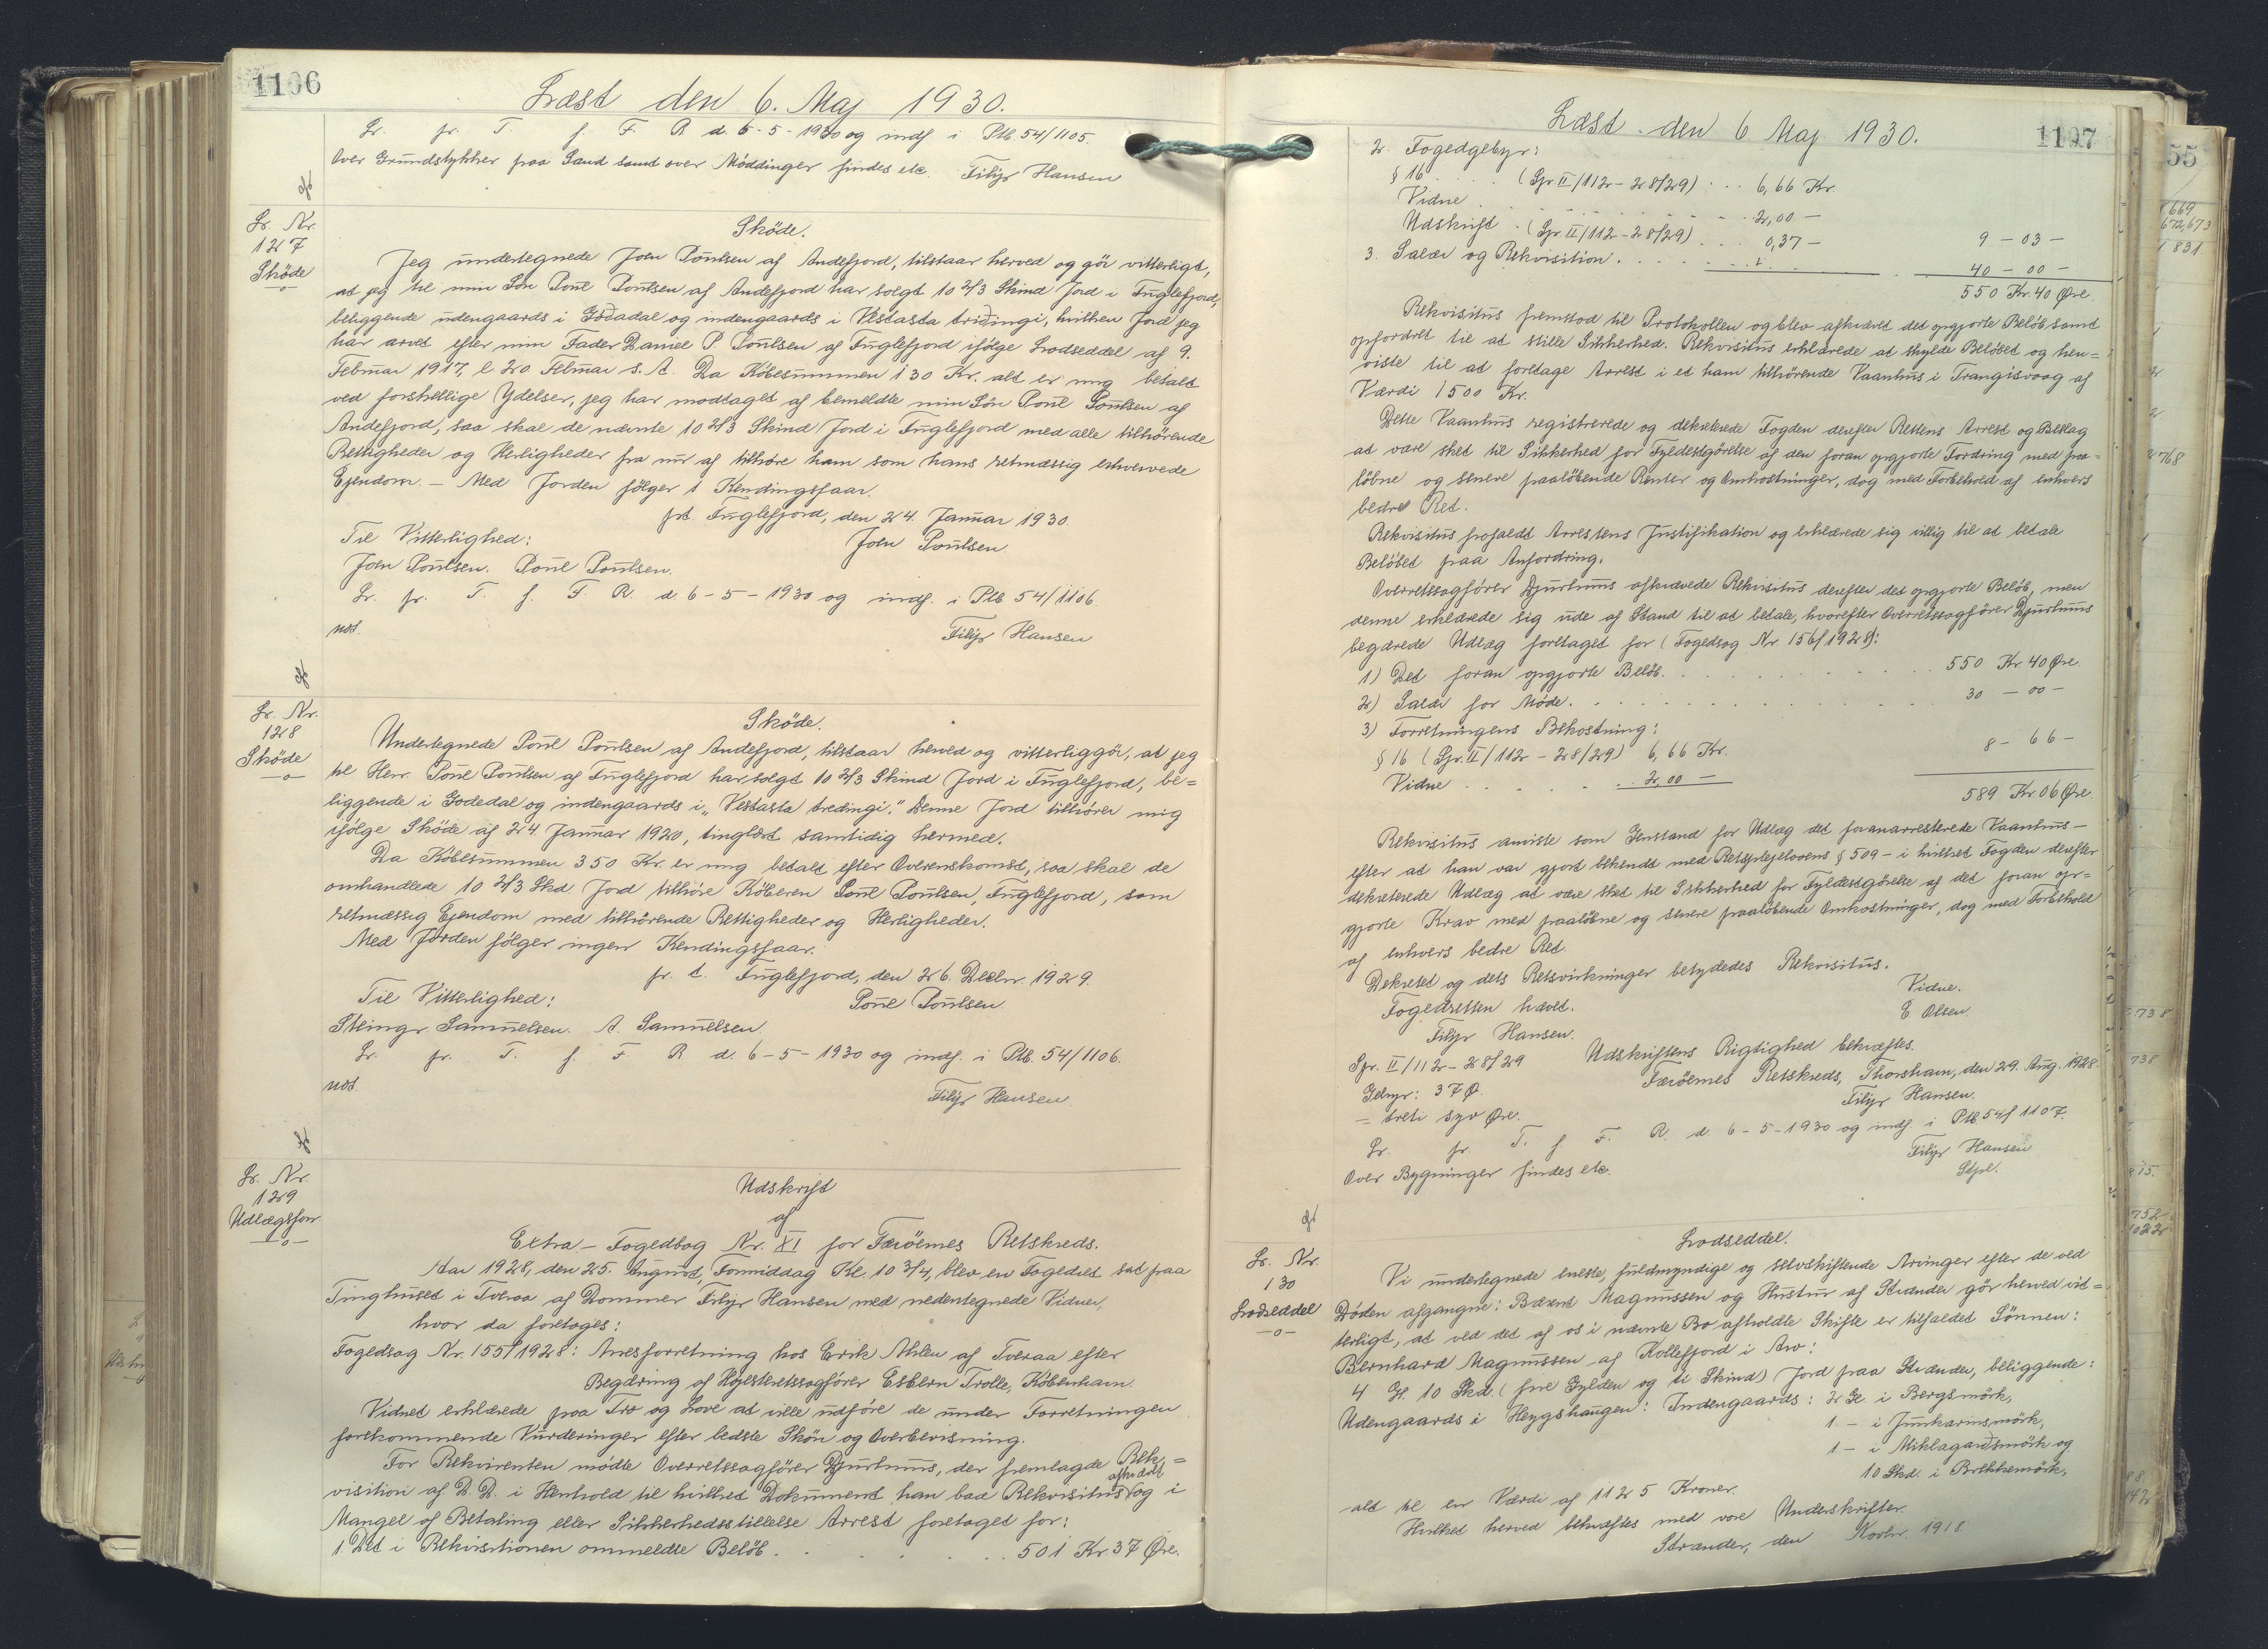 1106
Læst den 6. Maj 1930.
Lr. pr. T. f. F. R. d. 6-5-1930 og indf. i Ptb. 54/1105.
Over Grundstykker paa Sand samt over Møddinger findes etc. Filip Hansen
Lr. Nr.
127
Sköde
Sköde.
Jeg undertegnede Joen Poulsen af Andefjord, tilstaar herved og gör vitterligt,
at jeg til min Sön Poul Poulsen af Andefjord har solgt 10 2/3 Skind Jord i Fuglefjord,
beliggende udengaards i Godadal og indengaards i Vestasta tridingi, hvilken Jord jeg
har arvet efter min Fader Daniel P. Poulsen af Fuglefjord ifölge Lodseddel af 9.
Februar 1917, l. 20. Februar s. A. Da Köbesummen 130 Kr. alt er mig betalt
ved forskellige Ydelser, jeg har modtaget af bemeldte min Sön Poul Poulsen af
Andefjord, saa skal de nævnte 10 2/3 Skind Jord i Fuglefjord med alle tilhörende
Rettigheder og Herligheder fra nu af tilhöre ham som hans retmæssig erhvervede
Ejendom. - Med Jorden fölger 1 Kendingsfaar.
pt. Fuglefjord, den 24. Januar 1930.
Til Vitterlighed: Joen Poulsen.
Joen Poulsen. Poul Poulsen.
Lr. pr. T. f. F. R. d. 6-5-1930 og indf. i Ptb 54/1106.
not. Filip Hansen
Lr. Nr.
128
Sköde
Sköde.
Undertegnede Poul Poulsen af Andefjord, tilstaar herved og vitterliggör, at jeg
til Herr. Poul Poulsen af Fuglefjord har solgt 10 2/3 Skind Jord i Fuglefjord, be=
liggende i Godedal og indengaards i „Vestasta tredingi." Denne Jord tilhörer mig
ifölge Sköde af 24. Januar 1920, tinglæst samtidig hermed.
Da Köbesummen 350 Kr. er mig betalt efter Overenskomst, saa skal de
omhandlede 10 2/3 Skd. Jord tilhöre Köberen Poul Poulsen, Fuglefjord, som
retmæssig Ejendom med tilhörende Rettigheder og Herligheder.
Med Jorden fölger ingen Kendingsfaar.
p. t. Fuglefjord, den 26. Decbr. 1929.
Til Vitterlighed: Poul Poulsen.
Steingr. Samuelsen. A. Samuelsen.
Lr. pr. T. f. F. R. d. 6-5-1930 og indf. i Ptb. 54/1106.
not. Filip Hansen
Lr. Nr.
129
Udlægsforr
Udskrift
af
Extra-Fogedbog Nr. XI for Færöernes Retskreds.
Aar 1928, den 25. August, Formiddag Kl. 10 3/4, blev en Fogedret sat paa
Tinghuset i Tveraa af Dommer Filip Hansen med nedentegnede Vidner,
hvor da foretoges:
Fogedsag Nr. 155/1928: Arrestforretning hos Erik Ahlen af Tveraa efter
Begæring af Höjesteretssagförer Esbern Trolle, Köbenhavn.
Vidnet erklærede paa Tro og Love at ville udföre de under Forretningen
forekommende Vurderinger efter bedste Skön og Overbevisning.
For Rekvirenten mödte Overretssagförer Djurhuus, der fremlagde Rek-=
visition af D. D. i Henhold til hvilket Dokument han bad Rekvisitus afkrævet og i
Mangel af Betaling eller Sikkerhedsstillelse Arrest foretaget for:
1. Det i Rekvisitionen ommeldte Belöb. 501 Kr. 37 Øre.
1107
Læst den 6 Maj 1930.
2. Fogedgebyr:
§ 16 (Spr. II/112-28/29) 6,66 Kr.
Vidne 2,00 -
Udskrift (Spr. II/112-28/29) 0,37 - 9-03-
3. Salær og Rekvisition. 40-00-
550 Kr. 40 Øre.
Rekvisitus fremstod til Protokollen og blev afkrævet det opgjorte Belöb samt
opfordret til at stille Sikkerhed. Rekvisitus erklærede at skylde Belöbet og hen=
viste til at foretage Arrest i et ham tilhörende Vaanhus i Trangisvaag af
Værdi 1500 Kr.
Dette Vaanhus registrerede og dekreterede Fogden derefter Rettens Arrest og Beslag
at være sket til Sikkerhed for Fyldestgörelse af den foran opgjorte Fordring med paa=
löbne og senere paalöbende Renter og Omkostninger, dog med Forbehold af enhvers
bedre Ret.
Rekvisitus frafaldt Arrestens Justifikation og erklærede sig villig til at betale
Belöbet paa Anfordring.
Overretssagförer Djurhuus afkrævede Rekvisitus derefter det opgjorte Belöb, men
denne erklærede sig ude af Stand til at betale, hvorefter Overretssagförer Djurhuus
begærede Udlæg foretaget for (Fogedsag Nr. 156/1928):
1) Det foran opgjorte Belöb. 550 Kr. 40 Øre.
2) Salær for Möde. 30 - 00 -
3) Forretningens Bekostning:
§ 16 (Spr. II/112-28/29) 6,66 Kr.
Vidne 2,00 - 8 - 66 -
589 Kr. 06 Øre.
Rekvisitus anviste som Genstand for Udlæg det foranarresterede Vaanhus -
efter at han var gjort bekendt med Retsplejelovens § 509 - i hvilket Fogden derefter
dekreterede Udlæg at være sket til Sikkerhed for Fyldestgörelse af det foran op=
gjorte Krav med paalöbne og senere paalöbende Omkostninger, dog med Forbehold
af enhvers bedre Ret.
Dekretet og dets Retsvirkninger betydedes Rekvisitus.
Fogedretten hævet. Vidne.
Filip Hansen. E Olsen.
Spr. II/112-28/29 Udskriftens Rigtighed bekræftes.
Gebyr: 37 Ø. Færöernes Retskreds, Thorshavn, den 29. Aug. 1928.
= treti syv Øre. Filip Hansen.
Lr. pr. T. f. F. R. d. 6-5-1930 og indf. i Ptb. 54/1107.
Over Bygninger findes etc. Filip Hansen
Lr. Nr.
130
Lodseddel
Lodseddel.
Vi undertegnede eneste, fuldmyndige og selvskiftende Arvinger efter de ved
Döden afgangne: Magnussen og Hustru af Strænder gör herved vit=
terligt, at ved det af os i nævnte Bo afholdte Skifte er tilfaldet Sönnen:
Bernhard Magnussen af Kollefjord i Arv:
4 Gl. 10 Skd. (fire Gylden og ti Skind) Jord paa Strænder, beliggende:
Udengaards i Heygshaugen: Indengaards: 2 Gl. i Bergsmörk,
1 - i Junkarinsmörk,
1 - i Miklagardsmörk og
10 Skd. i Brekkemörk,
alt til en Værdi af 1125 Kroner.
Hvilket herved bekræftes med vore Underskrifter.
Strænder, den Novbr. 1918.
55
669
672,673
831
768
738
738
815.
752
1022
88
142